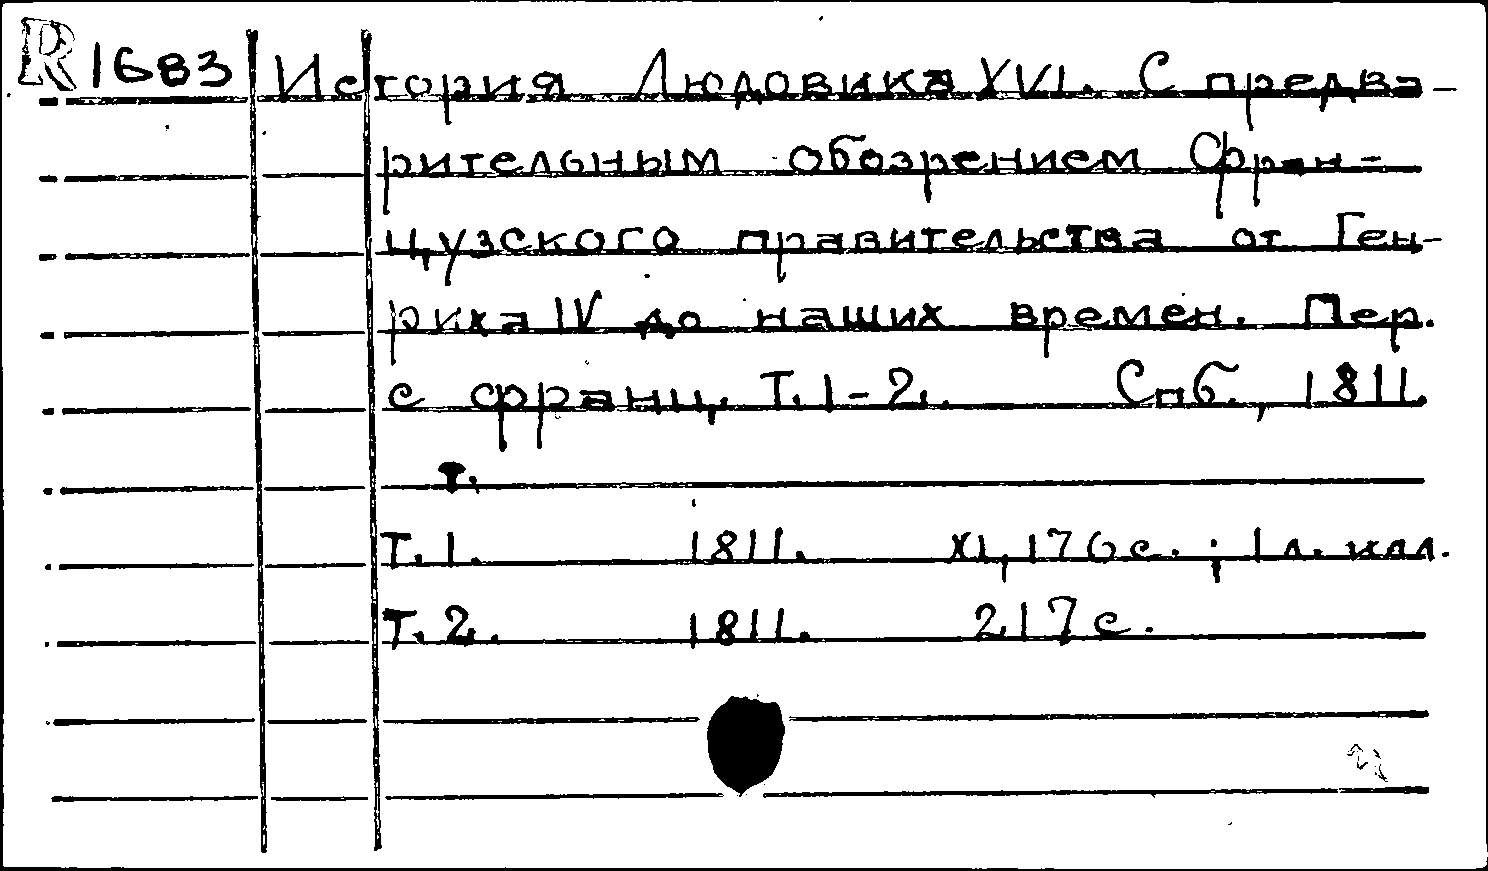 R 1683 История Людовика XVI. С предва-
рительным обозрением Фран-
цузского правительства от Ген-
риха IV до наших времен. Пер.
с франц. Т. 1-2. Спб., 1811.
Т.
Т. 1. 1811. XI, 176 с.; 1 л. илл.
Т. 2. 1811. 217 с.